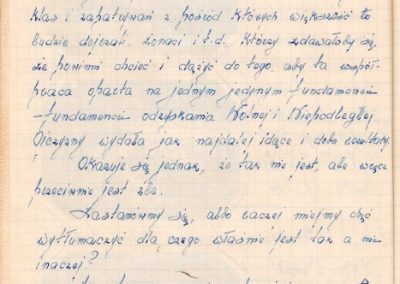 klas i zapatrywań z pośród których większość to
ludzie dojrzali żonaci i t.d. Którzy zdawałoby się,
że powinni chcieć i dążyć do tego, aby ta współ-
praca oparta na jednym jedynym fundamencie
- fundamencie odzyskania Wolnej i Niepodległej
Ojczyzny wydała jak najdalej idące i dobre rezultaty.
Okazuje się jednak, że tak nie jest, ale wręcz
przeciwnie jest źle.
Zastanówmy się, albo raczej miejmy chęć
wytłumaczyć dla czego właśnie jest tak a nie
inaczej?